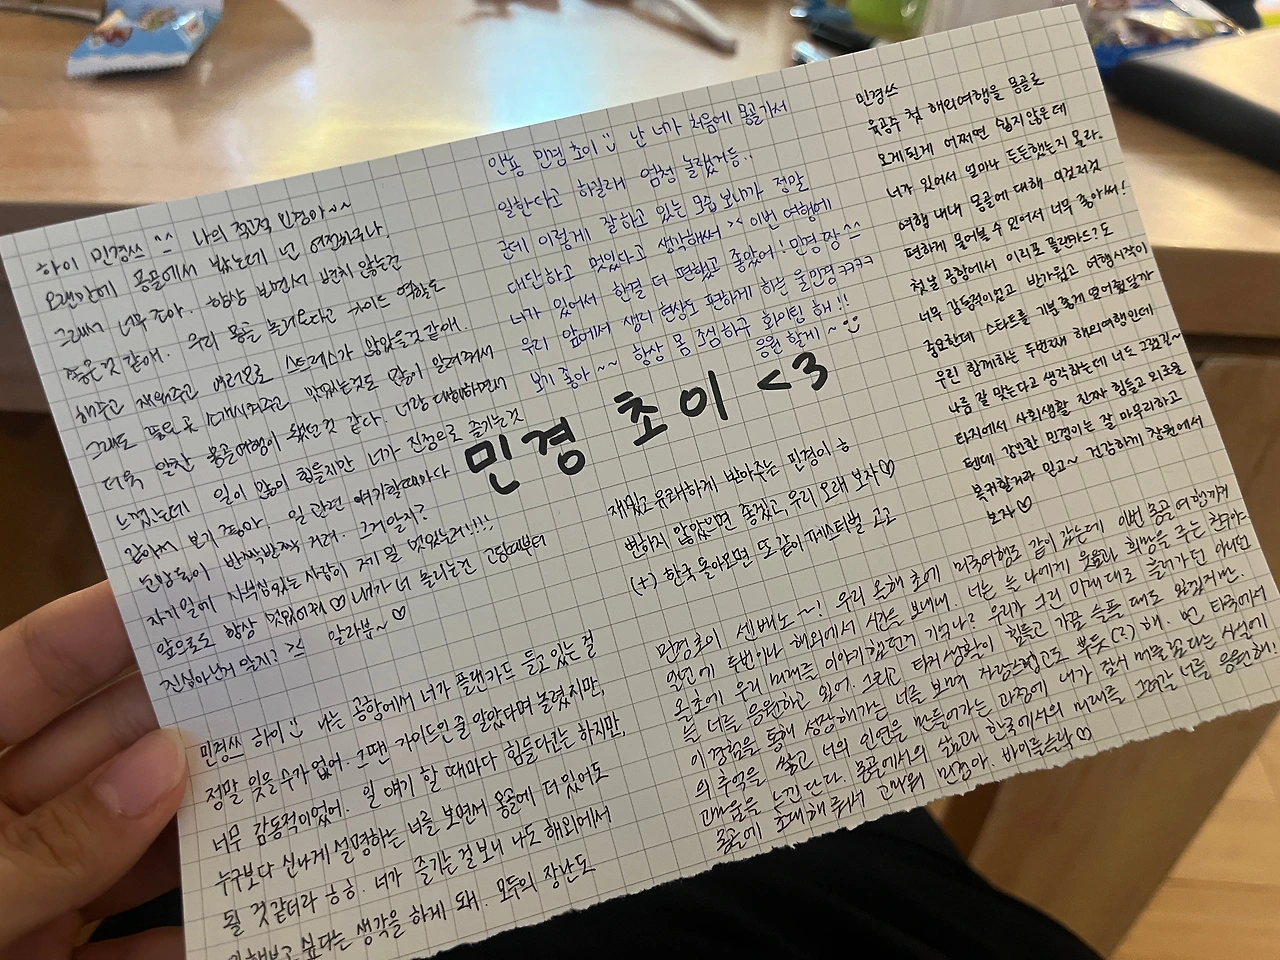 하이 민경쓰 ^^ 나의 직은적 민경아~~
오랜만에 몽골에서 봤는데 넌 여전하구나.
그래서 너무 좋아. 항상 보면서 변치 않는건
좋은 것 같애. 우리 몽골 놀러온다고 가이드 역할도
해주고 재워주고 여러모로 스트레스가 많았을것 같애.
그래도 필요한 곳 소개시켜주고 맛있는것도 많이 알려줘서
더욱 알찬 몽골여행이 됐던것 같다. 너랑 대화하면서
느꼈는데 일이 많이 힘들지만 너가 진정으로 즐기는것
같아서 보기 좋아. 일 관련 얘기할때마다
눈망울이 반짝반짝 거려. 그거알지?
자기일에 자부심있는사람이 제일 멋있는거!!!!
앞으로도 항상 멋있어줘♡ 내가 너 놀리는건 고딩때부터
진심아닌거 알지? >< 알라뷰~♡
안뇽 민경초이 :) 난 너가 처음에 몽골가서
일한다고 하길래 엄청 놀랬거등..
근데 이렇게 잘하고 있는 모습 보니까 정말
대단하고 멋있다고 생각해써 >< 이번 여행에
너가 있어서 한결 더 편했고 좋았어! 민경 짱^^
우리 앞에서 생리현상도 편하게 하는 울민경 ㅋㅋㅋㅋ
보기 좋아~~ 항상 몸 조심하구 화이팅 해!!
응원 할게~ :)
민경 초이 <3
민경쓰
육공주 첫 해외여행을 몽골로
오게된게 어쩌면 쉽지않은데
너가 있어서 얼마나 든든했는지 몰라.
여행 내내 몽골에 대해 이것저것
편하게 물어볼 수 있어서 너무 좋아써!
첫날 공항에서 이리포 플랜카드?도
너무 감동적이었고 반가웠고 여행시작이
중요한데 스타트를 기분좋게 열어줬달까
우린 함께하는 두번째 해외여행인데
나름 잘 맞는다고 생각하는데 너도 그렇길~
타지에서 사회생활 진짜 힘들고 외로울
텐데 강인한 민경이는 잘 마무리하고
복귀할거라 믿고~ 건강하게 창원에서
보자♡
민경쓰 하이 :) 나는 공항에서 너가 플랜카드 들고 있는 걸
정말 잊을 수가 없어. 그땐 가이드인 줄 알았다며 놀렸지만,
너무 감동적이었어. 일 얘기 할 때마다 힘들다고는 하지만,
누구보다 신나게 설명하는 너를 보면서 몽골에 더 있어도
될 것 같더라 ㅎㅎ. 너가 즐기는 걸 보니 나도 해외에서
일해보고 싶다는 생각을 하게 돼. 모두의 장난도
재밌고 유쾌하게 받아주는 민경이 ㅎ
변하지 않았으면 좋겠고, 우리 오래 보자♡
(+) 한국 돌아오면 또 같이 페스티벌 고고
민경초이 센베노~~! 우리 올해 초에 미국여행도 같이 갔는데 이번 몽골여행까지
일년에 두번이나 해외에서 시간을 보내네. 너는 늘 나에게 웃음과 희망을 주는 친구야
올초에 우리 미래를 이야기했던거 기억나? 우리가 그린 미래대로 흘러가던 아니던
늘 너를 응원하고 있어. 그리고 타지생활이 힘들고 가끔 슬플 때도 있겠지만.
이 경험을 통해 성장해가는 너를 보며 자랑스럽고도 뿌듯(?)해. 먼 타국에서
의 추억을 쌓고 너의 인연을 만들어가는 과정에 내가 잠시 머물렀다는 사실에
고마움을 느낀단다. 몽골에서의 삶과 한국에서의 미래를 그려갈 너를 응원해!
몽골에 초대해줘서 고마워 민경아. 바이를슬락♡